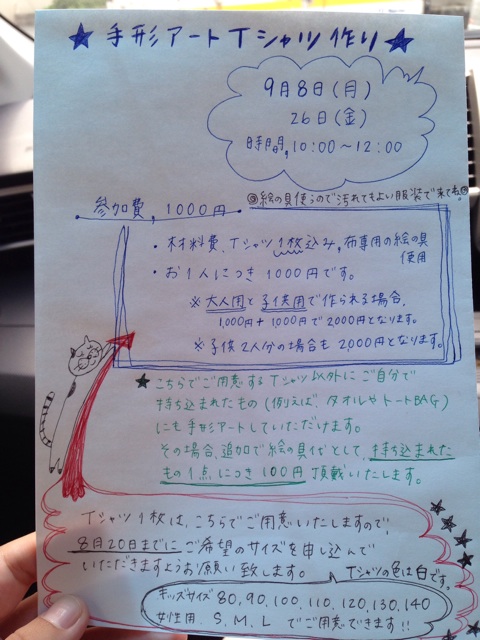 ★手形アートTシャツ作り★
9月8日(月)
26日(金)
時間,10:00～12:00
絵の具使うので汚れてもよい服装で来てね。
参加費,1000円
・材料費、Tシャツ1枚込み,布専用の絵の具
使用
・お1人につき1000円です。
※大人用と子供用で作られる場合、
1,000円+1,000円で2,000円となります。
※子供2人分の場合も2,000円となります。
★こちらでご用意するTシャツ以外にご自分で
持ち込まれたもの(例えば、タオルやトートBAG)
にも手形アートしていただけます。
その場合、追加で絵の具代として、持ち込まれた
もの1点につき100円頂戴いたします。
Tシャツ1枚は、こちらでご用意いたしますので、
8月20日までにご希望のサイズを申し込んで
いただきますようお願い致します。
Tシャツの色は白です。
キッズサイズ80,90,100,110,120,130,140
女性用 S,M,L でご用意できます!!